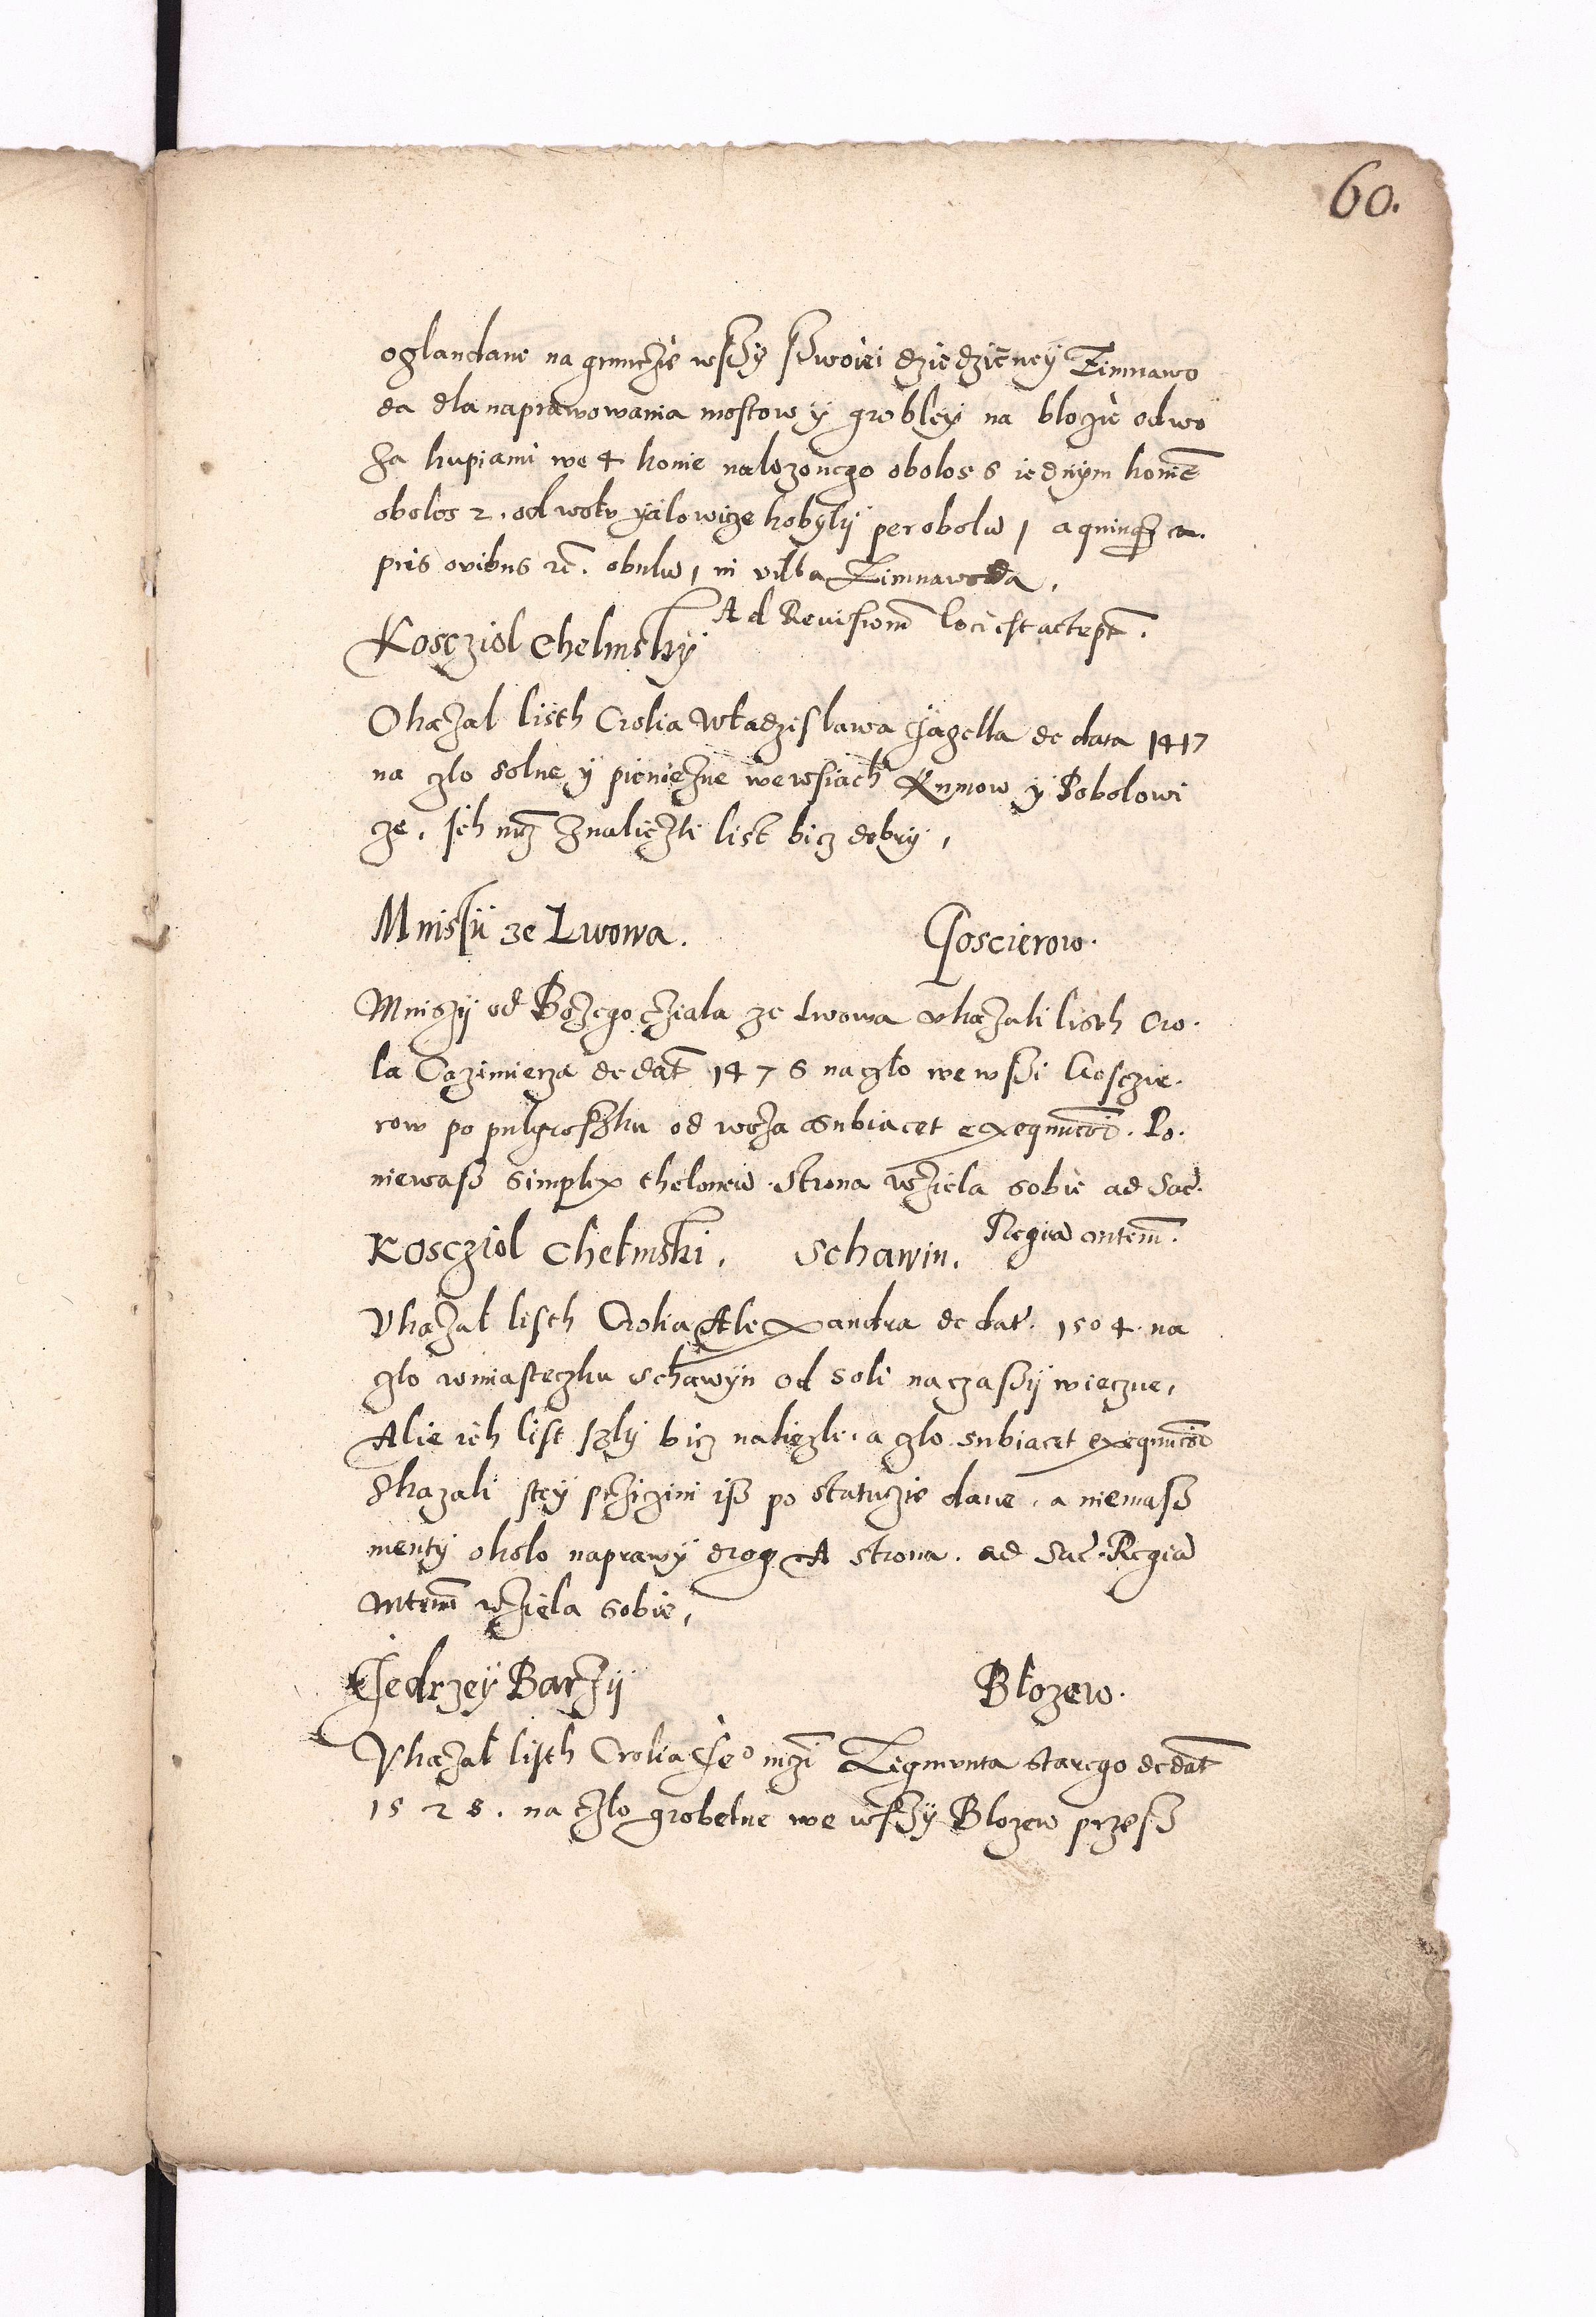 60.
oglandane na grunczie wsſzy ſzwoiei dziedziczney Zimnawo
da dla naprawowania mostow y grobley na blozie od wo
za kupiami we 4 konie nalozonego obolos 6 iednym koniē
obolos 2. od wolu yalowicze kobyly per obolū 1 a quinqȝ ca.
pris ovibus rē. obulū 1 in villa Zimnawoda,
Ad Reuisionē loci est accept̄.
Kosczziol Chelmsky
Okazal listh Crolia Wladzislawa Jagella de data 1417
na czlo solne y pieniezne we wsiach Kumow y Pobolowi
cze. Ich mcz znaliezli list bicz dobry,
Mnisſy ze Lwowa. Goscierow.
Mniszy od Bozego cziala ze Lwowa vkazali listh Cro.
la Cazimierza de dat̄ 1476 na czlo we wsſi Gosczie.
row po pulgroſzku od woza subiacet exequucōī. Po.
niewasz simplex theloneū. Strona wziela sobie ad Sac̄.
Regiā mtem̄.
Koscziol Chelmski. Schawin.
Vkazal listh Crolia Alexandra de dat̄. 1504. na
czlo w miasteczku Schawyn od soli na czasſy wieczne,
Alie ich list szly bicz nalezli. a czlo subiacet exequucōī
Skazali stey przicini isz po statucie dane, a niemasz
menty okolo naprawy drog A strona. ad Sac̄. Regiā
mtem̄ wziela sobie,
Jedrzey Barzy Blozew.
Vkazal listh Crolia Je° mczi Zigmunta starego de dat̄
1528. na czlo grobelne we wsſzy Blozew przesz